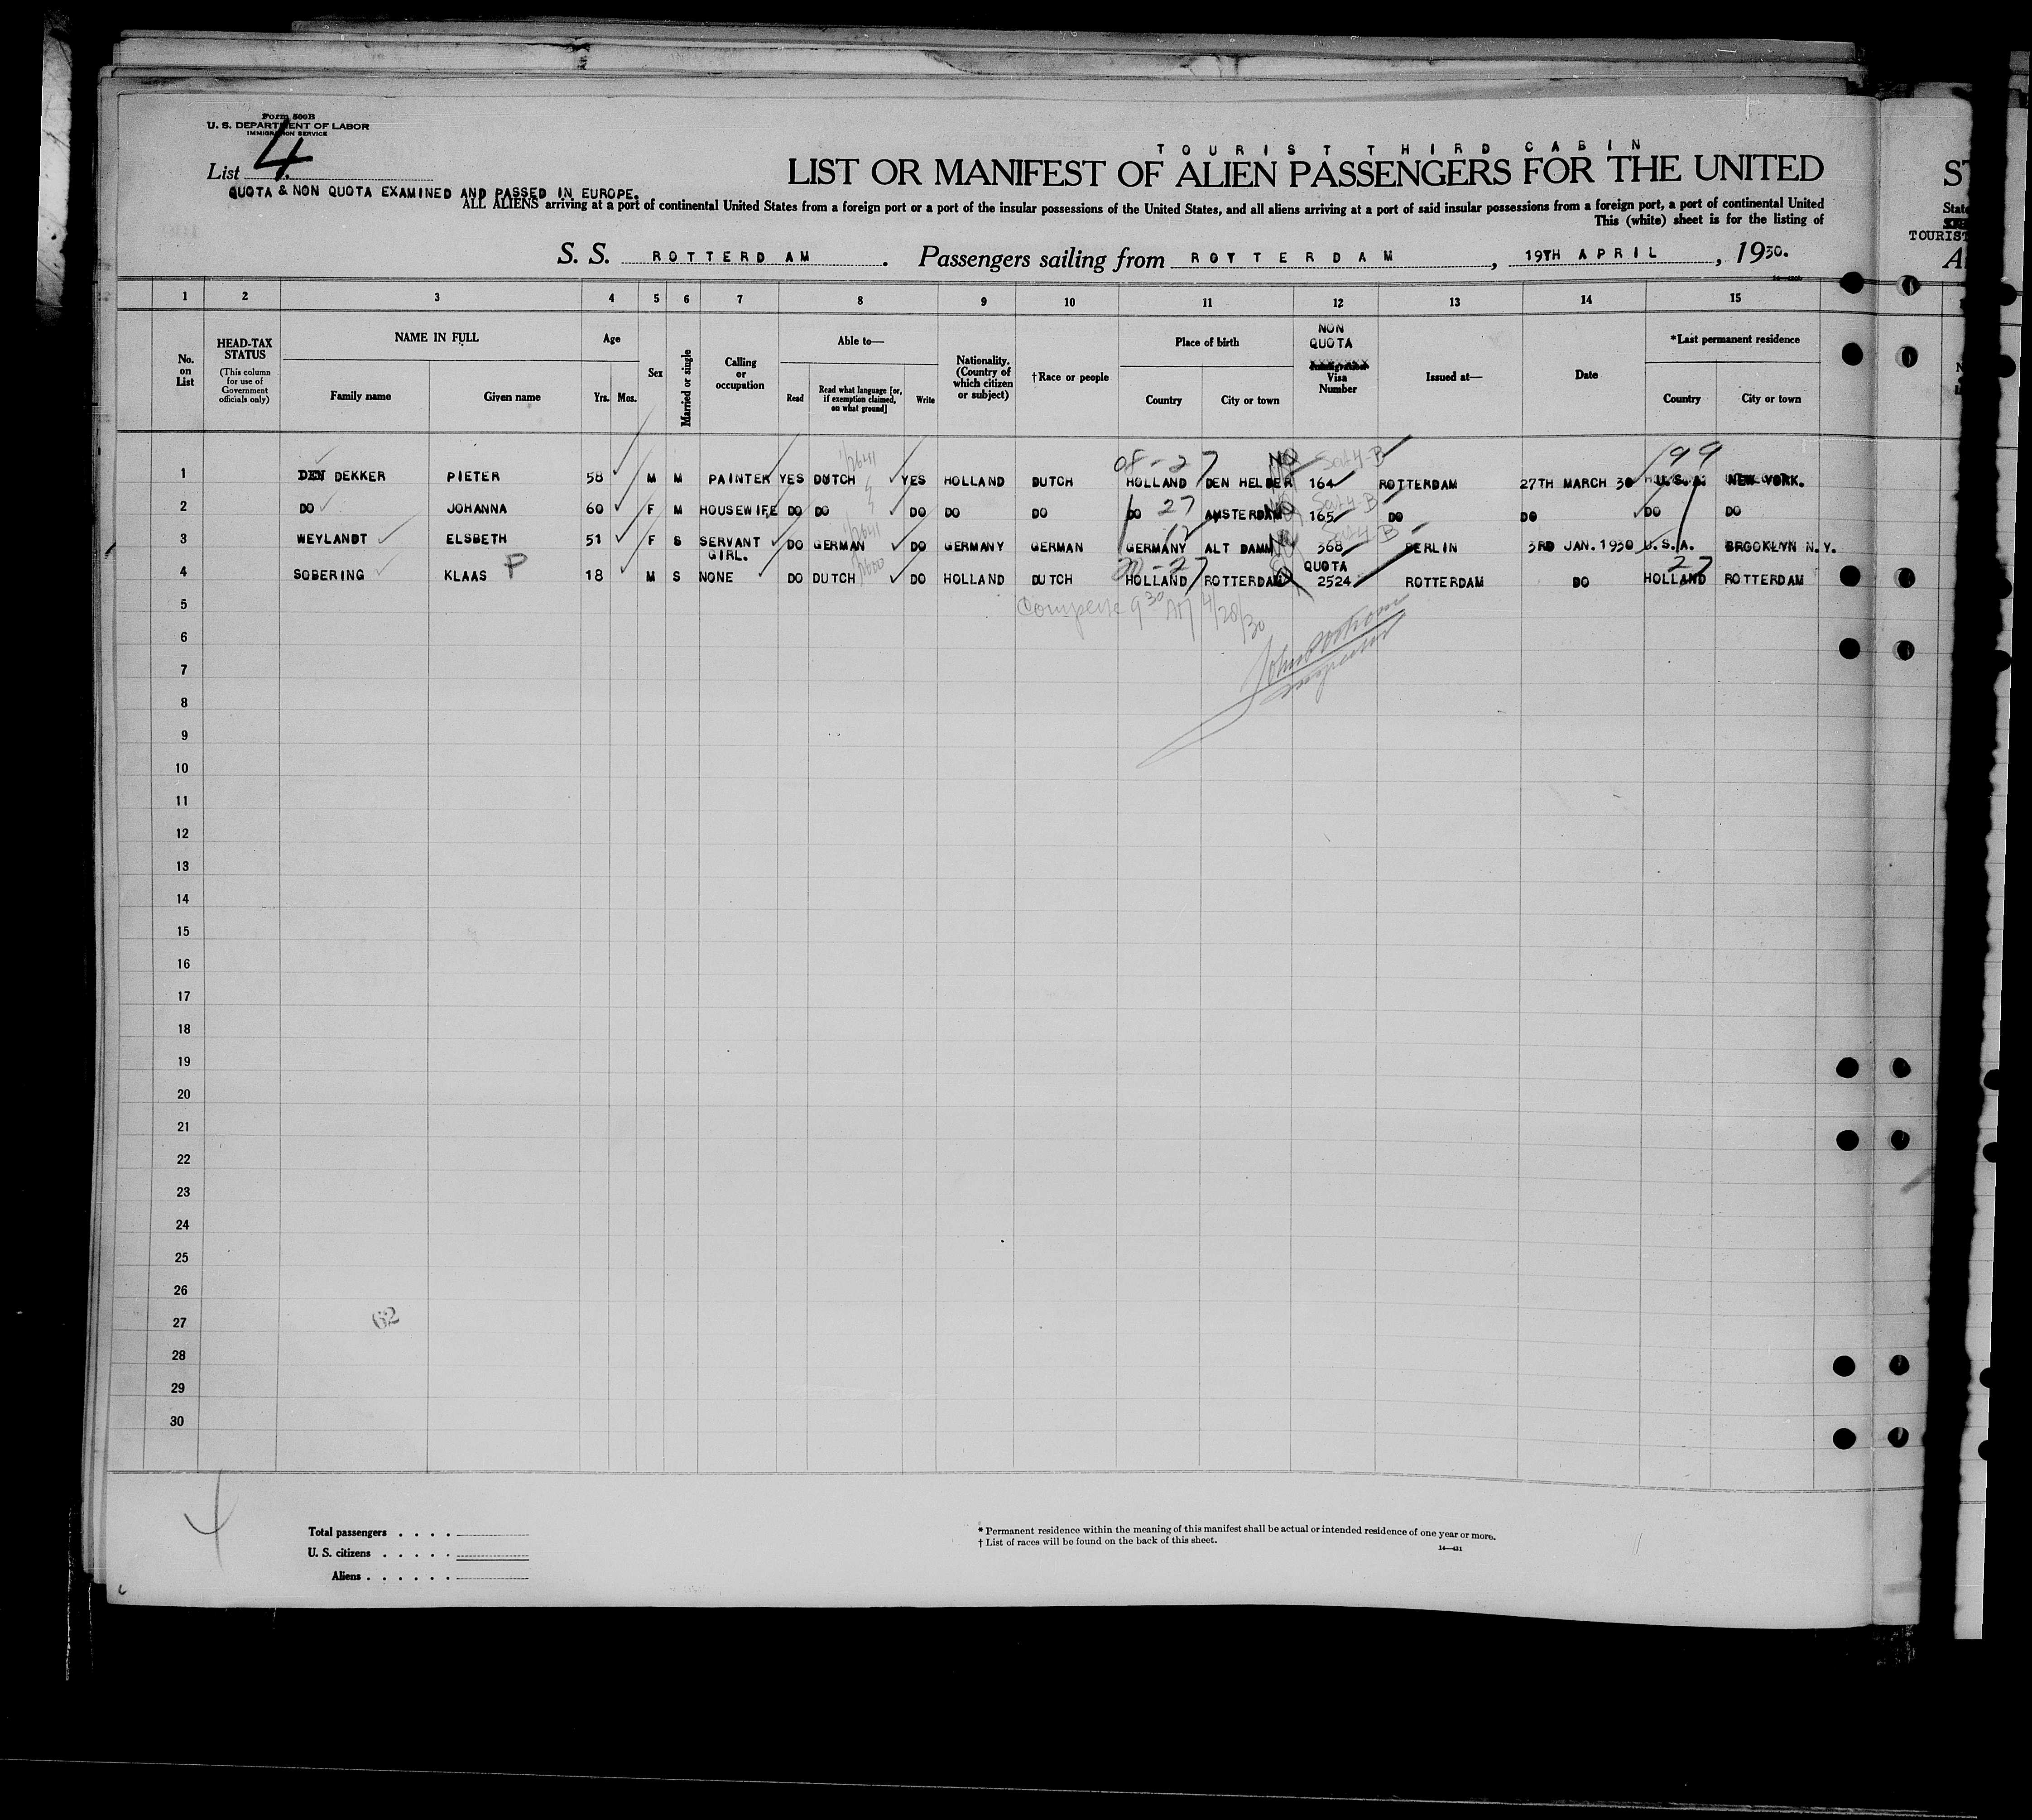 Form 500B
U. S. DEPARTMENT OF LABOR
IMMIGRATION SERVICE
List 4.
TOURIST THIRD CABIN
LIST OR MANIFEST OF ALIEN PASSENGERS FOR THE UNITED
QUOTA & NON QUOTA EXAMINED AND PASSED IN EUROPE.
ALL ALIENS arriving at a port of continental United States from a foreign port or a port of the insular possessions of the United States, and all aliens arriving at a port of said insular possessions from a foreign port, a port of continental United
This (white) sheet is for the listing of
S. S. ROTTERDAM. Passengers sailing from ROTTERDAM, 19TH APRIL, 1930.
ST
State
TOURIST
A
1 2 3 4 5 6 7 8 9 10 11 12 13 14 15
No. on List
HEAD-TAX STATUS
(This column for use of Government officials only)
NAME IN FULL
Family name Given name
Age
Yrs. Mos.
Sex
Married or single
Calling or occupation
Able to—
Read Read what language [or, if exemption claimed, on what ground] Write
Nationality. (Country of which citizen or subject)
†Race or people
Place of birth
Country City or town
NON QUOTA
Visa Number
Issued at—
Date
*Last permanent residence
Country City or town
08-27 NO 199
1 DEN DEKKER PIETER 58 M M PAINTER YES DUTCH YES HOLLAND DUTCH HOLLAND DEN HELDER 164 ROTTERDAM 27TH MARCH 30 U.S.A. NEW YORK.
2 DO JOHANNA 60 F M HOUSEWIFE DO DO DO DO DO DO 27 AMSTERDAM 165 DO DO DO DO
3 WEYLANDT ELSBETH 51 F S SERVANT GIRL. DO GERMAN DO GERMANY GERMAN GERMANY ALT DAMM 368 BERLIN 3RD JAN. 1930 U.S.A. BROOKLYN N.Y.
4 SOBERING KLAAS P 18 M S NONE DO DUTCH DO HOLLAND DUTCH HOLLAND ROTTERDAM QUOTA 2524 ROTTERDAM DO HOLLAND 27 ROTTERDAM
5
6
7
8
9
10
11
12
13
14
15
16
17
18
19
20
21
22
23
24
25
26
27
28
29
30
62
Total passengers
U. S. citizens
Aliens
* Permanent residence within the meaning of this manifest shall be actual or intended residence of one year or more.
† List of races will be found on the back of this sheet.
14—431